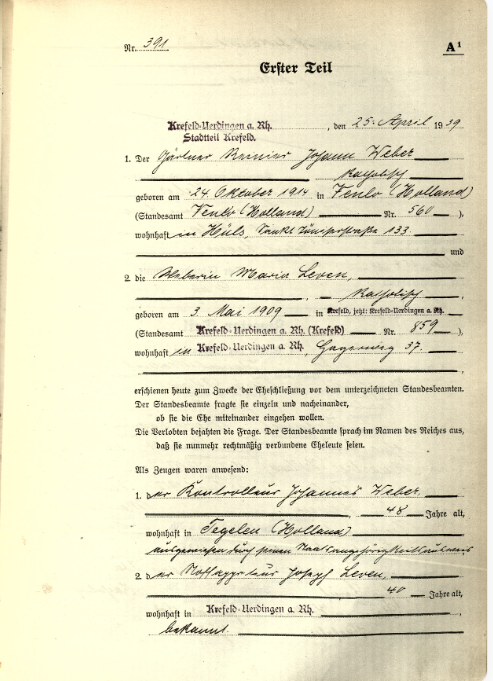 Nr. 391
A1
Erster Teil
Krefeld-Uerdingen a. Rh. , den 25. April 1939
Stadtteil Krefeld.
1. Der Gärtner Johann Weber
katholisch
geboren am 24. Oktober 1914 in Venlo (Holland)
(Standesamt Venlo (Holland) Nr. 560 ).
wohnhaft in Hüls, 133
und
2. die Weberin Maria Leven,
katholisch
geboren am 3. Mai 1909 in Krefeld, jetzt: Krefeld-Uerdingen a. Rh.
(Standesamt Krefeld-Uerdingen a. Rh. (Krefeld) Nr. 859 ),
wohnhaft in Krefeld-Uerdingen a. Rh., 37.
erschienen heute zum Zwecke der Eheschließung vor dem unterzeichneten Standesbeamten.
Der Standesbeamte fragte sie einzeln und nacheinander,
ob sie die Ehe miteinander eingehen wollen.
Die Verlobten bejahten die Frage. Der Standesbeamte sprach im Namen des Reiches aus,
daß sie nunmehr rechtmäßig verbundene Eheleute seien.
Als Zeugen waren anwesend:
1. der Kontrolleur Johannes Weber
48 Jahre alt,
wohnhaft in Tegelen (Holland)
ausgewiesen durch seinen Staatsangehörigkeitsausweis
2. der Joseph Leven,
40 Jahre alt,
wohnhaft in Krefeld-Uerdingen a. Rh.
bekannt.